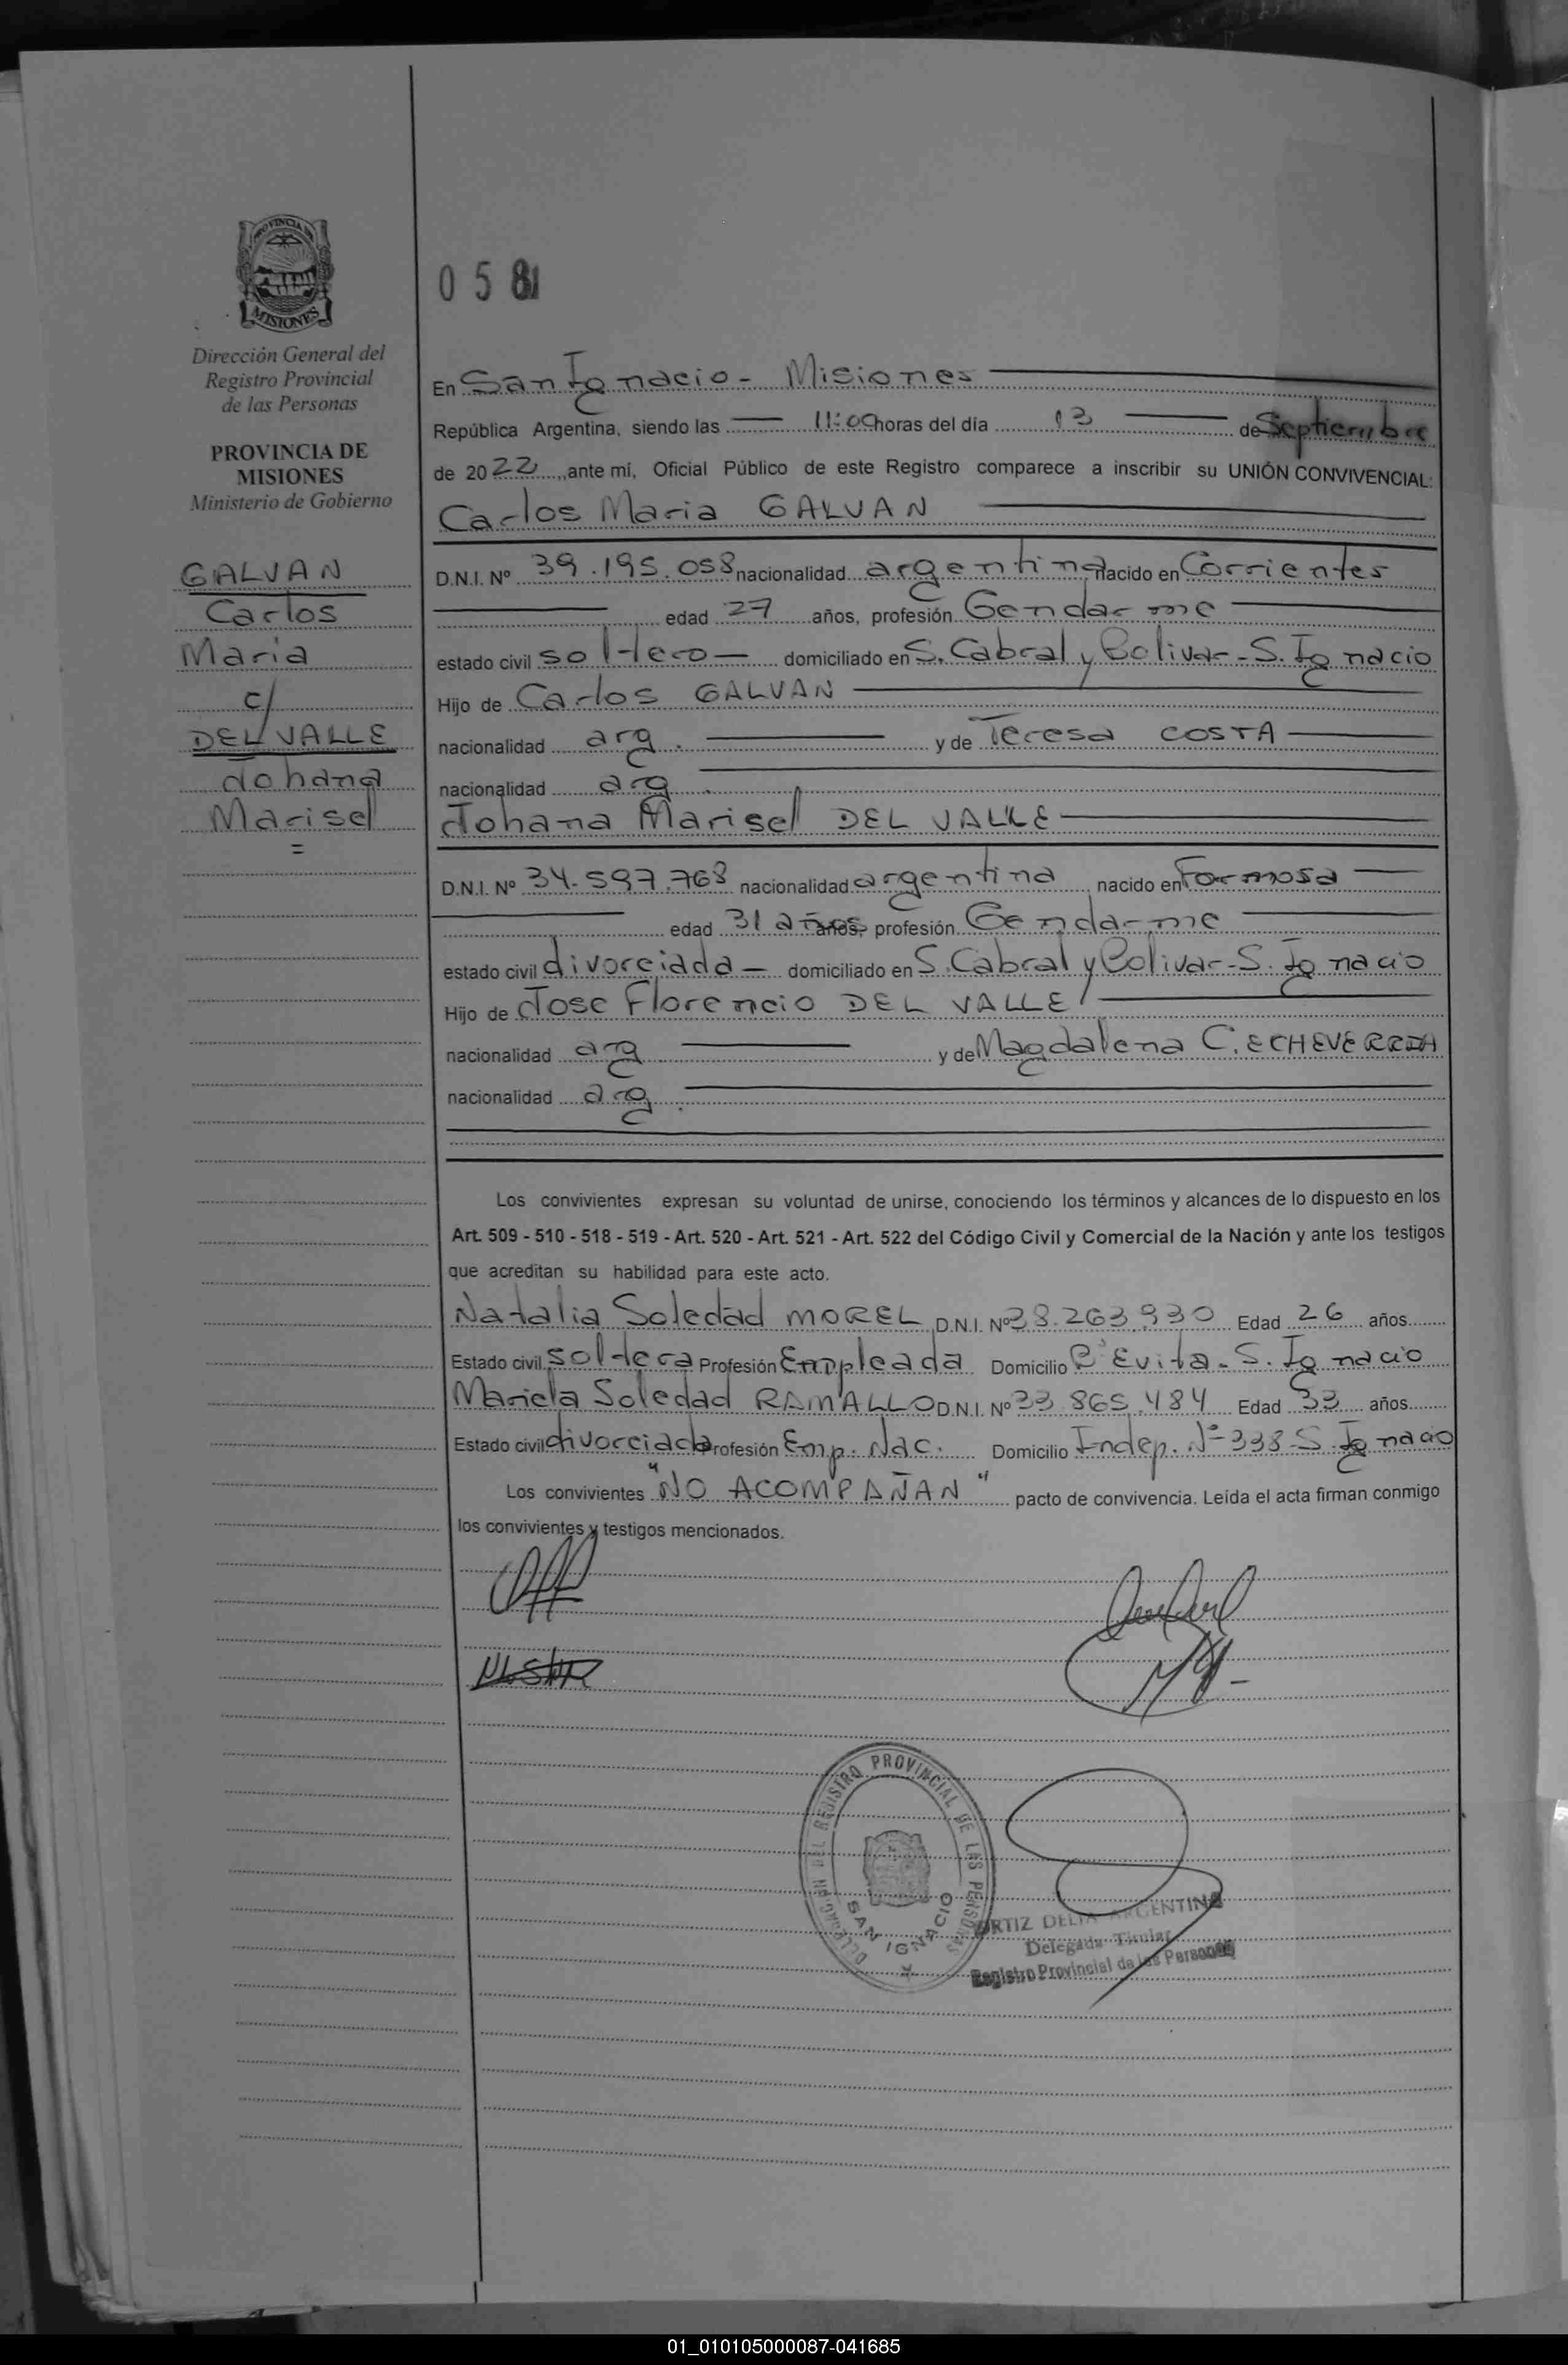 PROVINCIA DE
MISIONES
Dirección General del
Registro Provincial
de las Personas
PROVINCIA DE
MISIONES
Ministerio de Gobierno
GALVAN
Carlos
Maria
c/
DEL VALLE
Johana
Marisel
=
0 5 8
En San Ignacio - Misiones
República Argentina, siendo las 11:00 horas del día 13 de Septiembre
de 2022, ante mí, Oficial Público de este Registro comparece a inscribir su UNIÓN CONVIVENCIAL:
Carlos Maria GALVAN
D.N.I. Nº 39.195.058 nacionalidad argentina nacido en Corrientes
edad 27 años, profesión Gendarme
estado civil soltero - domiciliado en S. Cabral y Bolivar - S. Ignacio
Hijo de Carlos GALVAN
nacionalidad arg. y de Teresa COSTA
nacionalidad arg.
Johana Marisel DEL VALLE
D.N.I. Nº 34.597.768 nacionalidad argentina nacido en Formosa
edad 31 años años, profesión Gendarme
estado civil divorciada - domiciliado en S. Cabral y Bolivar - S. Ignacio
Hijo de Jose Florencio DEL VALLE
nacionalidad arg y de Magdalena C. ECHEVERRIA
nacionalidad arg.
Los convivientes expresan su voluntad de unirse, conociendo los términos y alcances de lo dispuesto en los
Art. 509 - 510 - 518 - 519 - Art. 520 - Art. 521 - Art. 522 del Código Civil y Comercial de la Nación y ante los testigos
que acreditan su habilidad para este acto.
Natalia Soledad MOREL D.N.I. Nº 38.263.930 Edad 26 años
Estado civil soltera Profesión Empleada Domicilio Bº Evita - S. Ignacio
Mariela Soledad RAMALLO D.N.I. Nº 33.865.484 Edad 33 años
Estado civil divorciada Profesión Emp. Nac. Domicilio Indep. Nº 338 - S. Ignacio
Los convivientes "NO ACOMPAÑAN" pacto de convivencia. Leída el acta firman conmigo
los convivientes y testigos mencionados.
DELEGACION DEL REGISTRO PROVINCIAL DE LAS PERSONAS
SAN IGNACIO
ORTIZ DELIA ARGENTINA
Delegada Titular
Registro Provincial de las Personas
01_010105000087-041685